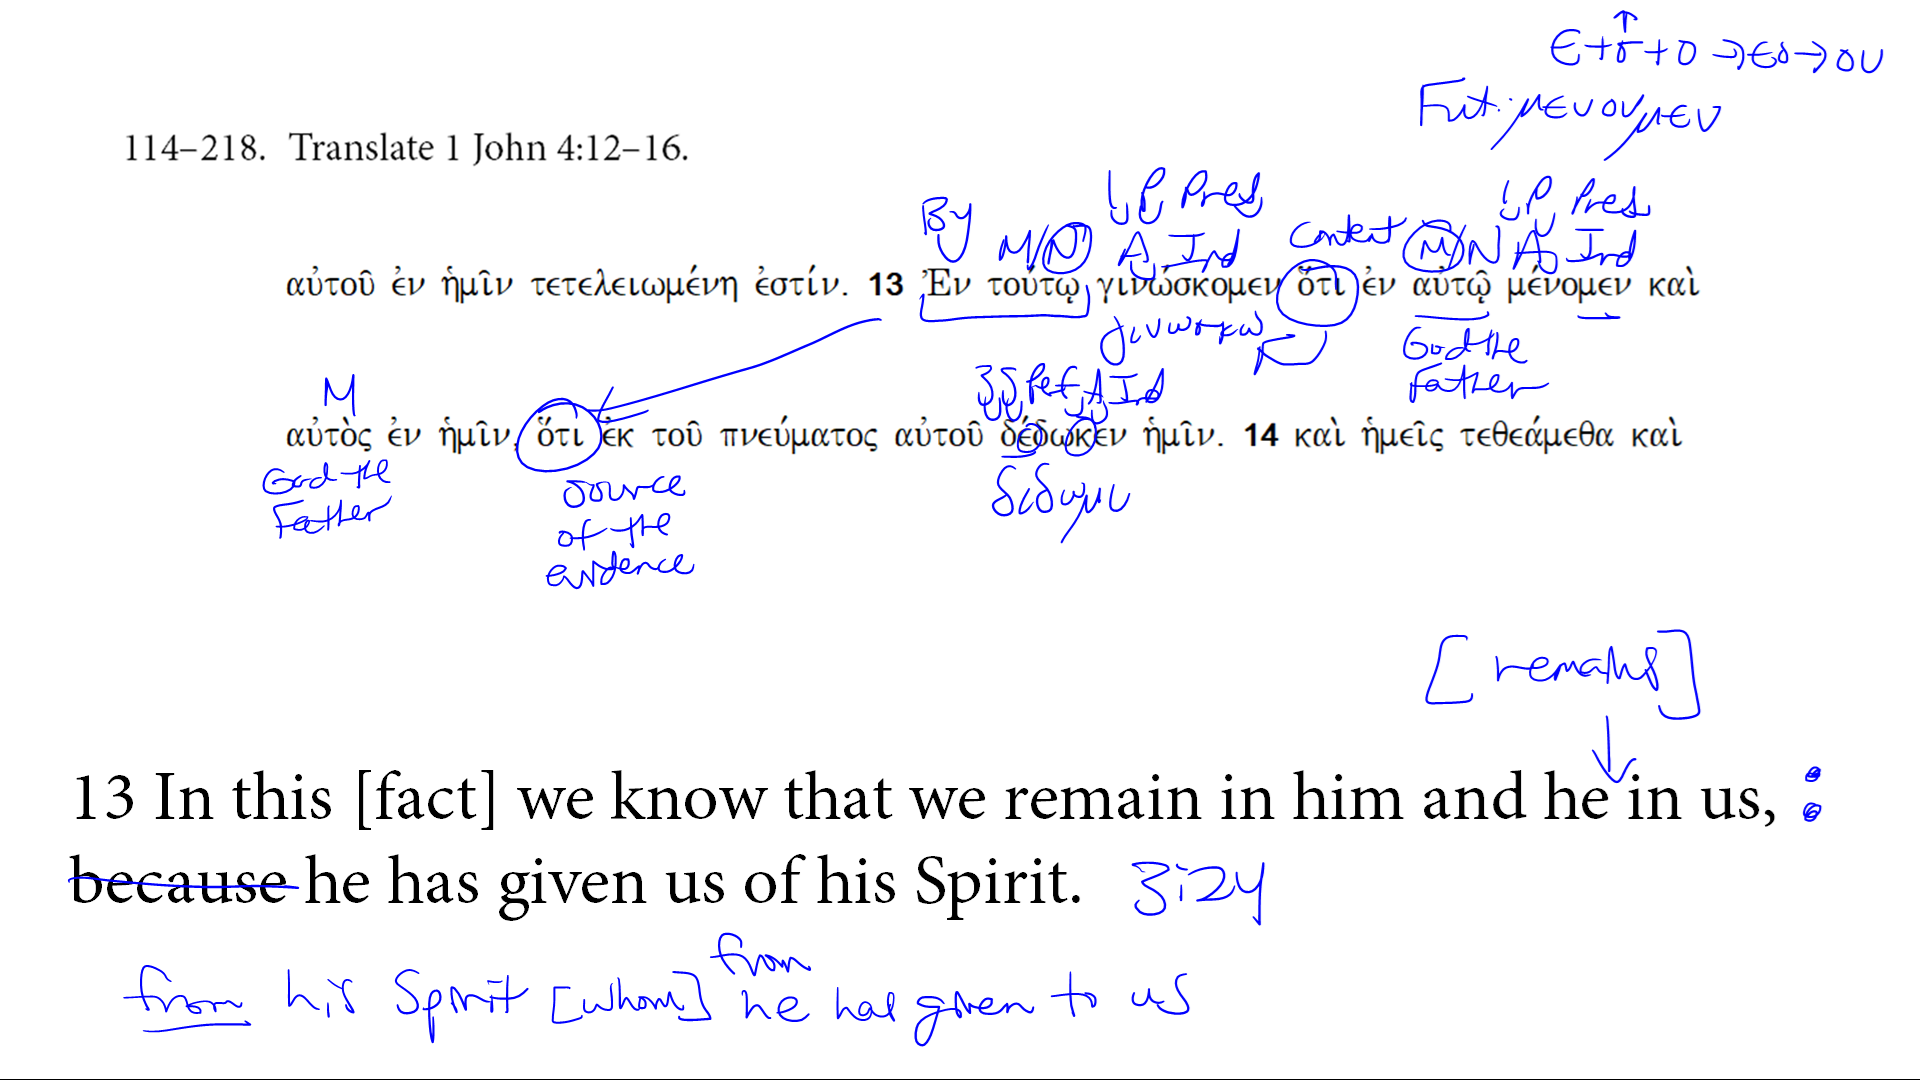 ϵ+σ+ο→ϵο→ου
Fut: μενουμεν
114–218. Translate 1 John 4:12–16.
By M/N 1 P Pres A Ind Content M/N 1 P Pres A Ind
αὐτοῦ ἐν ἡμῖν τετελειωμένη ἐστίν. 13 Ἐν τούτῳ γινώσκομεν ὅτι ἐν αὐτῷ μένομεν καὶ
γινωσκω God the Father
M 3 S Perf A Ind
αὐτὸς ἐν ἡμῖν, ὅτι ἐκ τοῦ πνεύματος αὐτοῦ δέδωκεν ἡμῖν. 14 καὶ ἡμεῖς τεθεάμεθα καὶ
God the Father source of the evidence διδωμι
[remains]
13 In this [fact] we know that we remain in him and he in us, :
because he has given us of his Spirit. 3:24
from
from his Spirit [whom] he has given to us